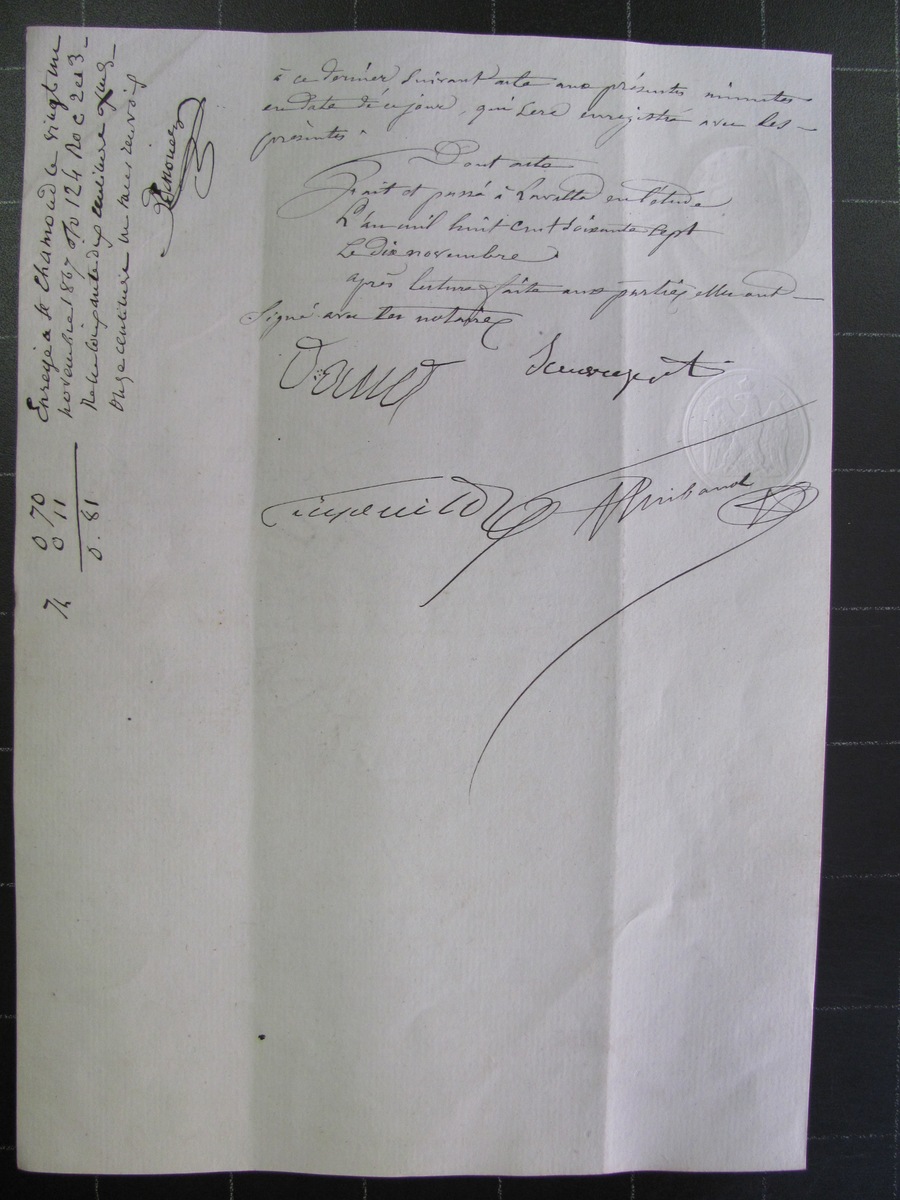 à ce dernier suivant acte aux présentes minutes
en date de ce jour, qui sera enregistré avec les
présentes.
Dont acte
Fait et passé à Lavalla en l'étude
L'an mil huit cent soixante sept
Le dix novembre
après lecture faite aux parties elles ont
Signé avec les notaires
Enregé à St Chamond le vingt un
novembre 1867 fo 124 Ro C 2 et 3
Reçu soixante dix centimes
onze centimes un renvoi
0 70
0 11
0. 81